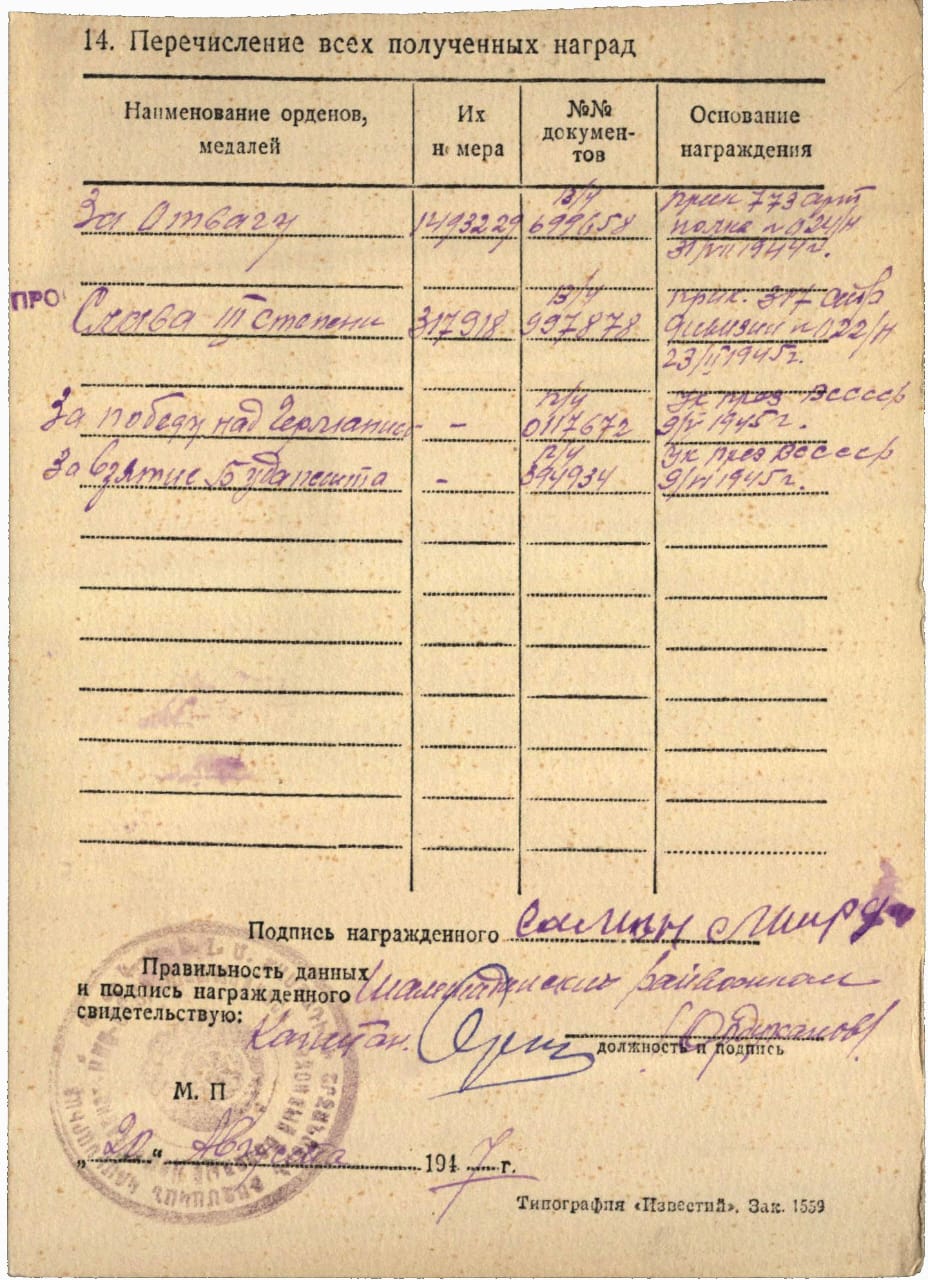 14. Перечисление всех полученных наград
Наименование орденов, медалей
Их номера
№№ документов
Основание награждения
За Отвагу 1493229 в/ч 699658 прик 773 арт полка № 024/н 31/VII 1944 г.
ПРО
Слава III степени 317918 в/ч 997878 прик. 317 дивизии № 022/н 23/II 1945 г.
За победу над Германией - п/ч 0117672 Ук през ВСССР 9/V 1945 г.
За взятие Будапешта - п/ч 394934 Ук през ВСССР 9/VI 1945 г.
Подпись награжденного
Правильность данных
и подпись награжденного
свидетельствую:
райвоенком
Капитан.
должность и подпись
М. П
„20“ Августа 1947 г.
Типография «Известий». Зак. 1559